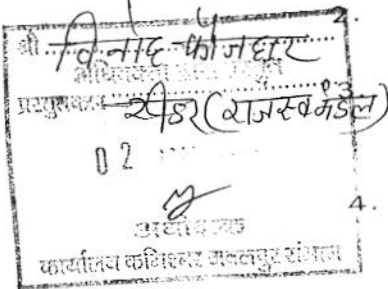 2.
श्री विनोद फौजदार
प्रस्तुतकार रीडर (राजस्व मंडल)
3
02
4.
कार्यालय कमिश्नर जबलपुर संभाग